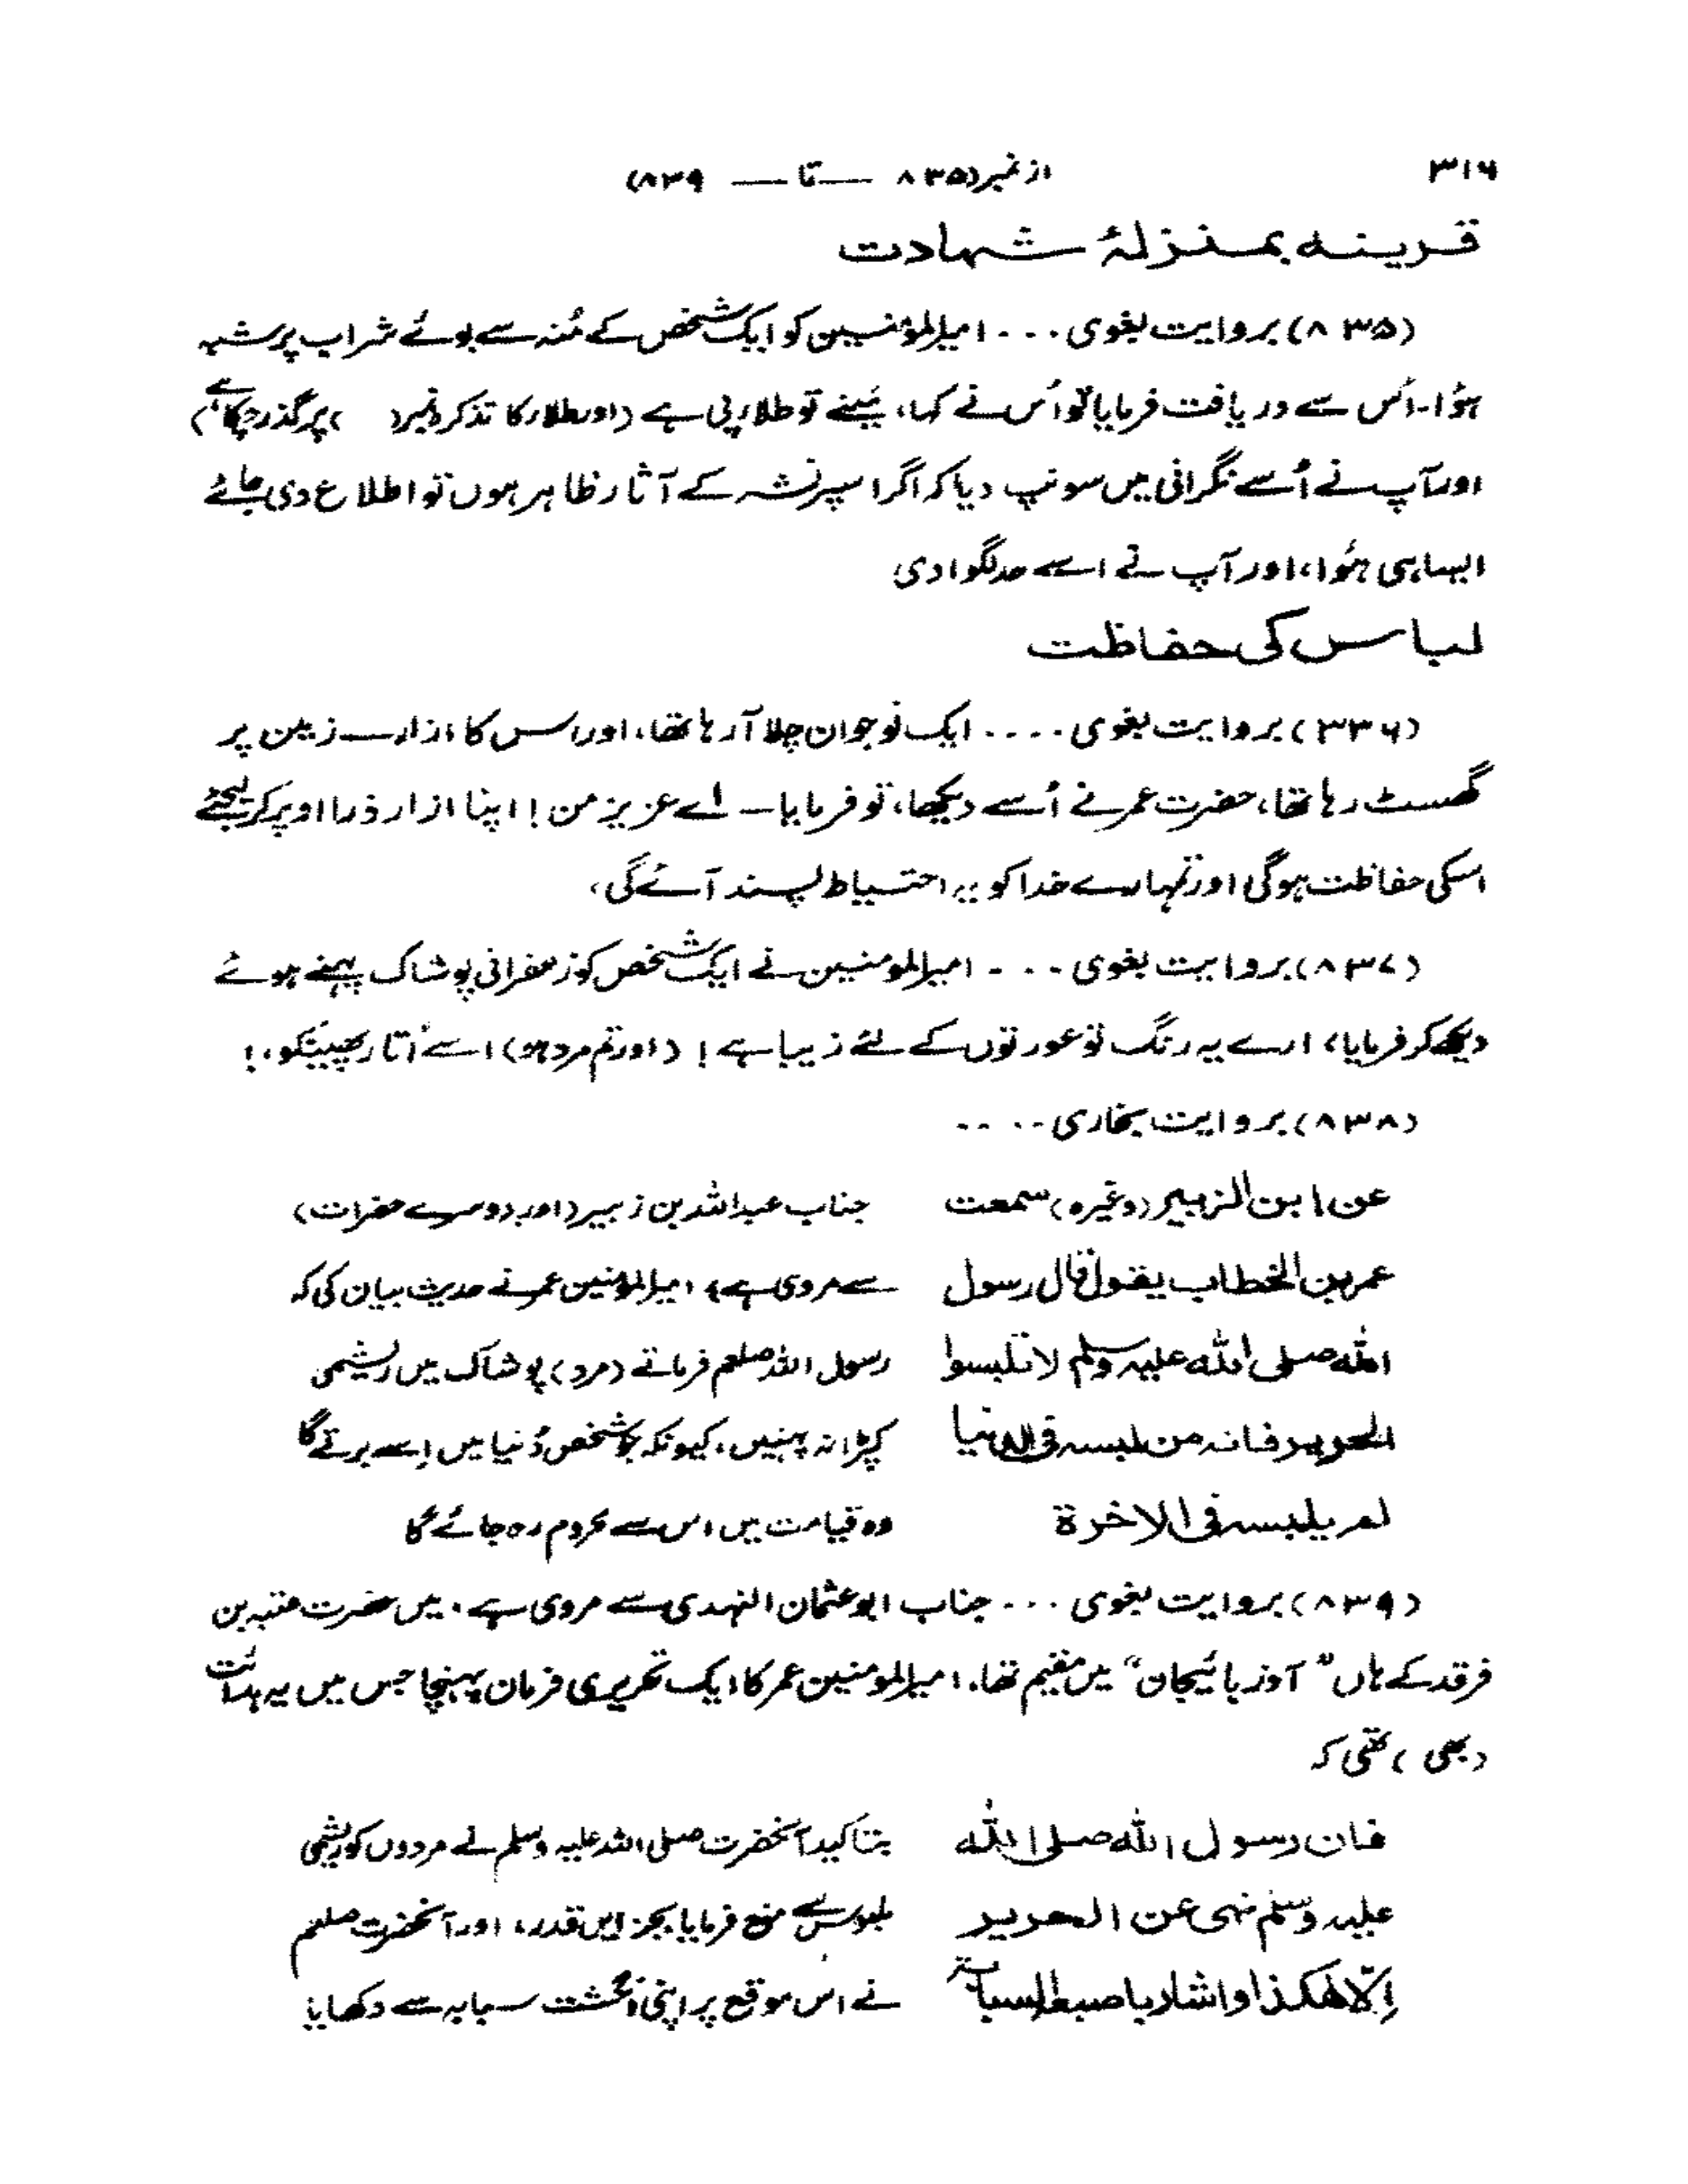 ۳۱۶
از نمبر(۸۳۵ — تا — ۸۳۹)
قرینہ بمنزلۂ شہادت
(۸۳۵) بروایت بغوی ۔۔۔ امیرالمؤمنین کو ایک شخص کے مُنہ سے بوئے شراب پر شبہ
ہؤا۔ اُس سے دریافت فرمایا تو اُس نے کہا، مَیں نے تو طلار پی ہے (اور طلار کا تذکر نمبر( ) پر گذر چکا ہے)
اور آپ نے اُسے نگرانی میں سونپ دیا کہ اگر اسپر نشہ کے آثار ظاہر ہوں تو اطلاع دی جائے
ایسا ہی ہُوا، اور آپ نے اسے حد لگوا دی
لباس کی حفاظت
(۳۳۶) بروایت بغوی ۔۔۔۔ ایک نوجوان چلا آ رہا تھا، اور اس کا ازار زمین پر
گھسٹ رہا تھا، حضرت عمر نے اُسے دیکھا، تو فرمایا — اے عزیز من! اپنا ازار ذرا اوپر کر لیجئے
اسکی حفاظت ہوگی اور تمہارے خدا کو یہ احتیاط پسند آئے گی،
(۸۳۷) بروایت بغوی ۔۔۔ امیرالمومنین نے ایک شخص کو زعفرانی پوشاک پہنے ہوئے
دیکھ کر فرمایا، ارے یہ رنگ تو عورتوں کے لئے زیبا ہے! (اور تم مرد ہو) اسے اُتار پھینکو،!
(۸۳۸) بروایت بخاری ۔۔۔۔
عن ابن الزبیر (وغیرہ) سمعت جناب عبداللہ بن زبیر (اور دوسرے حضرات)
عمر بن الخطاب یقول قال رسول سے مروی ہے، امیرالمؤمنین عمر نے حدیث بیان کی کہ
اللہ صلی اللہ علیہ وسلم لا تلبسوا رسول اللہ صلعم فرماتے (مرد) پوشاک میں ریشمی
الحریر فانہ من لبسہ فی الدنیا کپڑا نہ پہنیں، کیونکہ جو شخص دُنیا میں اِسے برتے گا
لم یلبسہ فی الاخرۃ وہ قیامت میں اس سے محروم رہ جائے گا
(۸۳۹) بروایت بغوی ۔۔۔ جناب ابو عثمان النہدی سے مروی ہے، میں حضرت عتبہ بن
فرقد کے ہاں "آوزبائیجان" میں مقیم تھا، امیرالمومنین عمر کا ایک تحریری فرمان پہنچا جس میں یہ ہدائت
(بھی) تھی کہ
فان رسول اللہ صلی اللہ بتاکید آنحضرت صلی اللہ علیہ وسلم نے مردوں کو ریشمی
علیہ وسلم نہی عن الحریر ملبوس سے منع فرمایا بجز اس قدر، اور آنحضرت صلعم
اِلّا ھکذا واشار باصبعہ السبابۃ نے اس موقع پر اپنی انگشت سبابہ سے دکھایا